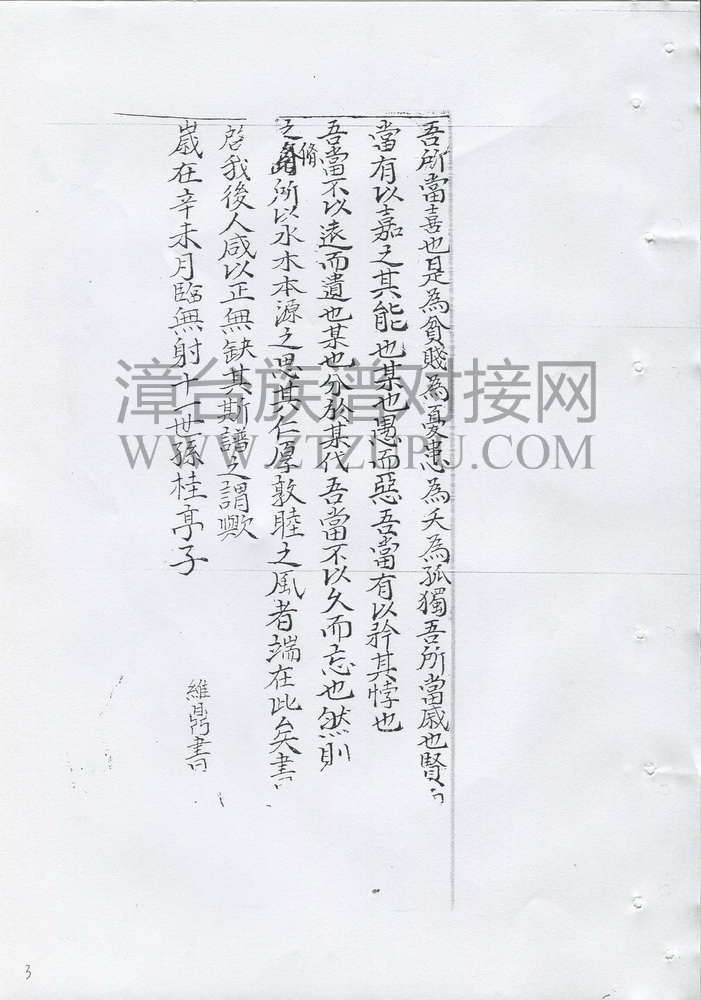 吾所當喜也是為貧賤為憂患為夭為孤獨吾所當戚也賢
當有以嘉之其能也某也愚而惡吾當有以矜其悖也
吾當不以遠而遺也某也分於某代吾當不以久而忘也然則
脩
之所以水木本源之思其仁厚敦睦之風者端在此矣書
啓我後人咸以正無缺其斯譜之謂歟
歲在辛未月臨無射十一世孫桂亭子
維鼎書
漳台族谱对接网
WWW.ZTZUPU.COM
3